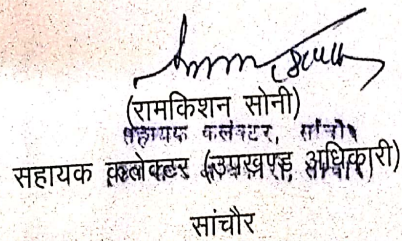 (रामकिशन सोनी)
सहायक कलेक्टर, सांचोर
सहायक कलेक्टर (उपखण्ड अधिकारी)
सांचौर